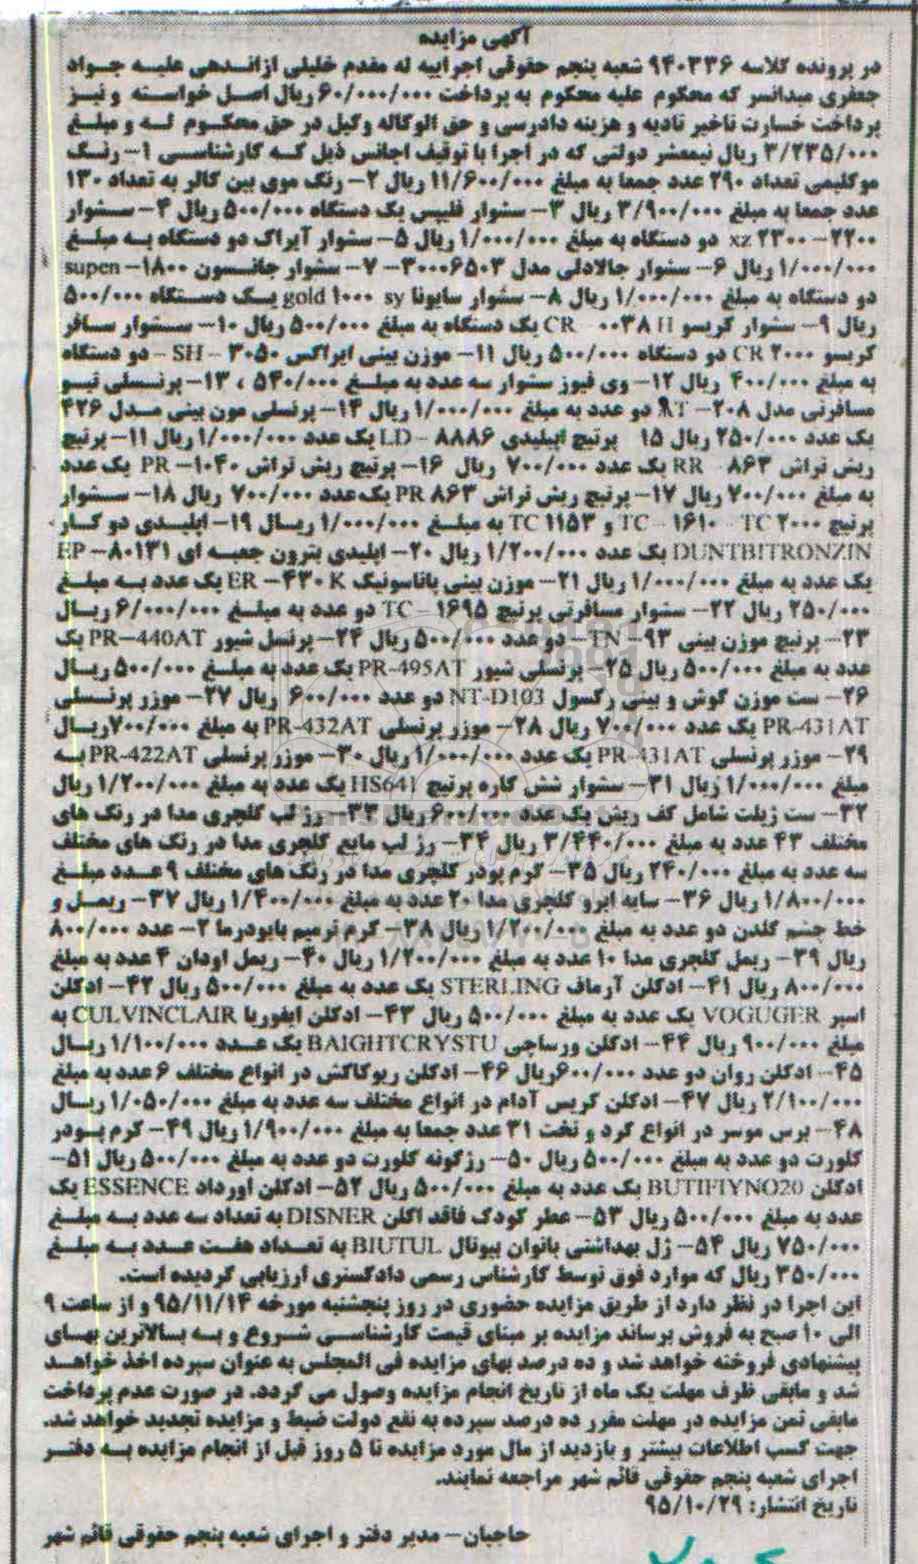 آگهی مزایده
در پرونده کلاسه ۹۴۰۳۳۶ شعبه پنجم حقوقی اجراییه له مقدم خلیلی ازاندهی علیه جواد
جعفری میدانسر که محکوم علیه محکوم به پرداخت ۶۰/۰۰۰/۰۰۰ ریال اصل خواسته و نیز
پرداخت خسارت تاخیر تادیه و هزینه دادرسی و حق الوکاله وکیل در حق محکوم له و مبلغ
۳/۲۳۵/۰۰۰ ریال نیمعشر دولتی که در اجرا با توقیف اجناس ذیل که کارشناسی ۱- رنگ
موکلیمی تعداد ۲۹۰ عدد جمعا به مبلغ ۱۱/۶۰۰/۰۰۰ ریال ۲- رنگ موی بین کالر به تعداد ۱۳۰
عدد جمعا به مبلغ ۳/۹۰۰/۰۰۰ ریال ۳- سشوار فلیپس یک دستگاه ۵۰۰/۰۰۰ ریال ۴- سشوار
۲۲۰۰- xz ۲۳۰۰ دو دستگاه به مبلغ ۱/۰۰۰/۰۰۰ ریال ۵- سشوار آیراک دو دستگاه به مبلغ
۱/۰۰۰/۰۰۰ ریال ۶- سشوار جالادلی مدل ۳۰۰۰۶۵۰۳- ۷- سشوار جانسون ۱۸۰۰- supen
دو دستگاه به مبلغ ۱/۰۰۰/۰۰۰ ریال ۸- سشوار سایونا gold ۱۰۰۰ sy یک دستگاه ۵۰۰/۰۰۰
ریال ۹- سشوار کریسو CR - ۰۰۳۸ H یک دستگاه به مبلغ ۵۰۰/۰۰۰ ریال ۱۰- سشوار سافر
کریسو CR ۲۰۰۰ دو دستگاه ۵۰۰/۰۰۰ ریال ۱۱- موزن بینی ایراکس SH - ۳۰۵۰ - دو دستگاه
به مبلغ ۴۰۰/۰۰۰ ریال ۱۲- وی فیوز سشوار سه عدد به مبلغ ۵۴۰/۰۰۰ ، ۱۳- پرنسلی نیو
مسافرتی مدل ۲۰۸- AT دو عدد به مبلغ ۱/۰۰۰/۰۰۰ ریال ۱۴- پرنسلی مون بینی مدل ۴۲۶
یک عدد ۲۵۰/۰۰۰ ریال ۱۵ پرتیچ اپیلیدی LD - ۸۸۸۶ یک عدد ۱/۰۰۰/۰۰۰ ریال ۱۱- پرتیچ
ریش تراش RR ۸۶۳ یک عدد ۷۰۰/۰۰۰ ریال ۱۶- پرتیچ ریش تراش ۱۰۴۰- PR یک عدد
به مبلغ ۷۰۰/۰۰۰ ریال ۱۷- پرتیچ ریش تراش PR ۸۶۳ یک عدد ۷۰۰/۰۰۰ ریال ۱۸- سشوار
پرتیچ TC - ۱۶۱۰ - TC ۲۰۰۰ و TC ۱۱۵۳ به مبلغ ۱/۰۰۰/۰۰۰ ریال ۱۹- اپلیدی دو کار
DUNTBITRONZIN یک عدد ۱/۲۰۰/۰۰۰ ریال ۲۰- اپلیدی بترون جعبه ای ۸۰۱۳۱- EP
یک عدد به مبلغ ۱/۰۰۰/۰۰۰ ریال ۲۱- موزن بینی پاناسونیک ER - ۴۳۰ K یک عدد به مبلغ
۲۵۰/۰۰۰ ریال ۲۲- سشوار مسافرتی پرتیچ TC - ۱۶۹۵ دو عدد به مبلغ ۶/۰۰۰/۰۰۰ ریال
۲۳- پرتیچ موزن بینی TN - ۹۳- دو عدد ۵۰۰/۰۰۰ ریال ۲۴- پرنسل شیور PR-440AT یک
عدد به مبلغ ۵۰۰/۰۰۰ ریال ۲۵- پرنسلی شیور PR-495AT یک عدد به مبلغ ۵۰۰/۰۰۰ ریال
۲۶- ست موزن گوش و بینی رکسول NT-D103 دو عدد ۶۰۰/۰۰۰ ریال ۲۷- موزر پرنسلی
PR-431AT یک عدد ۷۰۰/۰۰۰ ریال ۲۸- موزر پرنسلی PR-432AT به مبلغ ۷۰۰/۰۰۰ریال
۲۹- موزر پرنسلی PR-431AT یک عدد ۱/۰۰۰/۰۰۰ ریال ۳۰- موزر پرنسلی PR-422AT به
مبلغ ۱/۰۰۰/۰۰۰ ریال ۳۱- سشوار شش کاره پرتیچ HS641 یک عدد به مبلغ ۱/۲۰۰/۰۰۰ ریال
۳۲- ست ژیلت شامل کف ریش یک عدد ۶۰۰/۰۰۰ ریال ۳۳- رژ لب کلچری مدا در رنگ های
مختلف ۴۳ عدد به مبلغ ۳/۴۴۰/۰۰۰ ریال ۳۴- رژ لب مایع کلچری مدا در رنگ های مختلف
سه عدد به مبلغ ۲۴۰/۰۰۰ ریال ۳۵- کرم پودر کلچری مدا در رنگ های مختلف ۹ عدد مبلغ
۱/۸۰۰/۰۰۰ ریال ۳۶- سایه ابرو کلچری مدا ۲۰ عدد به مبلغ ۱/۴۰۰/۰۰۰ ریال ۳۷- ریمل و
خط چشم گلدن دو عدد به مبلغ ۱/۲۰۰/۰۰۰ ریال ۳۸- کرم ترمیم بایودرما ۲- عدد ۸۰۰/۰۰۰
ریال ۳۹- ریمل کلچری مدا ۱۰ عدد به مبلغ ۱/۲۰۰/۰۰۰ ریال ۴۰- ریمل اودان ۴ عدد به مبلغ
۸۰۰/۰۰۰ ریال ۴۱- ادکلن آرماف STERLING یک عدد به مبلغ ۵۰۰/۰۰۰ ریال ۴۲- ادکلن
اسپر VOGUGER یک عدد به مبلغ ۵۰۰/۰۰۰ ریال ۴۳- ادکلن ایفوریا CULVINCLAIR به
مبلغ ۹۰۰/۰۰۰ ریال ۴۴- ادکلن ورساچی BAIGHTCRYSTU یک عدد ۱/۱۰۰/۰۰۰ ریال
۴۵- ادکلن روان دو عدد ۶۰۰/۰۰۰ریال ۴۶- ادکلن ریوکاکش در انواع مختلف ۶ عدد به مبلغ
۲/۱۰۰/۰۰۰ ریال ۴۷- ادکلن کریس آدام در انواع مختلف سه عدد به مبلغ ۱/۰۵۰/۰۰۰ ریال
۴۸- برس موسر در انواع گرد و تخت ۳۱ عدد جمعا به مبلغ ۱/۹۰۰/۰۰۰ ریال ۴۹- کرم پودر
کلورت دو عدد به مبلغ ۵۰۰/۰۰۰ ریال ۵۰- رژگونه کلورت دو عدد به مبلغ ۵۰۰/۰۰۰ ریال ۵۱-
ادکلن BUTIFIYNO20 یک عدد به مبلغ ۵۰۰/۰۰۰ ریال ۵۲- ادکلن اورداد ESSENCE یک
عدد به مبلغ ۵۰۰/۰۰۰ ریال ۵۳- عطر کودک فاقد اکلن DISNER به تعداد سه عدد به مبلغ
۷۵۰/۰۰۰ ریال ۵۴- ژل بهداشتی بانوان بیوتال BIUTUL به تعداد هفت عدد به مبلغ
۳۵۰/۰۰۰ ریال که موارد فوق توسط کارشناس رسمی دادگستری ارزیابی گردیده است.
این اجرا در نظر دارد از طریق مزایده حضوری در روز پنجشنبه مورخه ۹۵/۱۱/۱۴ و از ساعت ۹
الی ۱۰ صبح به فروش برساند مزایده بر مبنای قیمت کارشناسی شروع و به بالاترین بهای
پیشنهادی فروخته خواهد شد و ده درصد بهای مزایده فی المجلس به عنوان سپرده اخذ خواهد
شد و مابقی ظرف مهلت یک ماه از تاریخ انجام مزایده وصول می گردد. در صورت عدم پرداخت
مابقی ثمن مزایده در مهلت مقرر ده درصد سپرده به نفع دولت ضبط و مزایده تجدید خواهد شد.
جهت کسب اطلاعات بیشتر و بازدید از مال مورد مزایده تا ۵ روز قبل از انجام مزایده به دفتر
اجرای شعبه پنجم حقوقی قائم شهر مراجعه نمایند.
تاریخ انتشار: ۹۵/۱۰/۲۹
حاجیان- مدیر دفتر و اجرای شعبه پنجم حقوقی قائم شهر